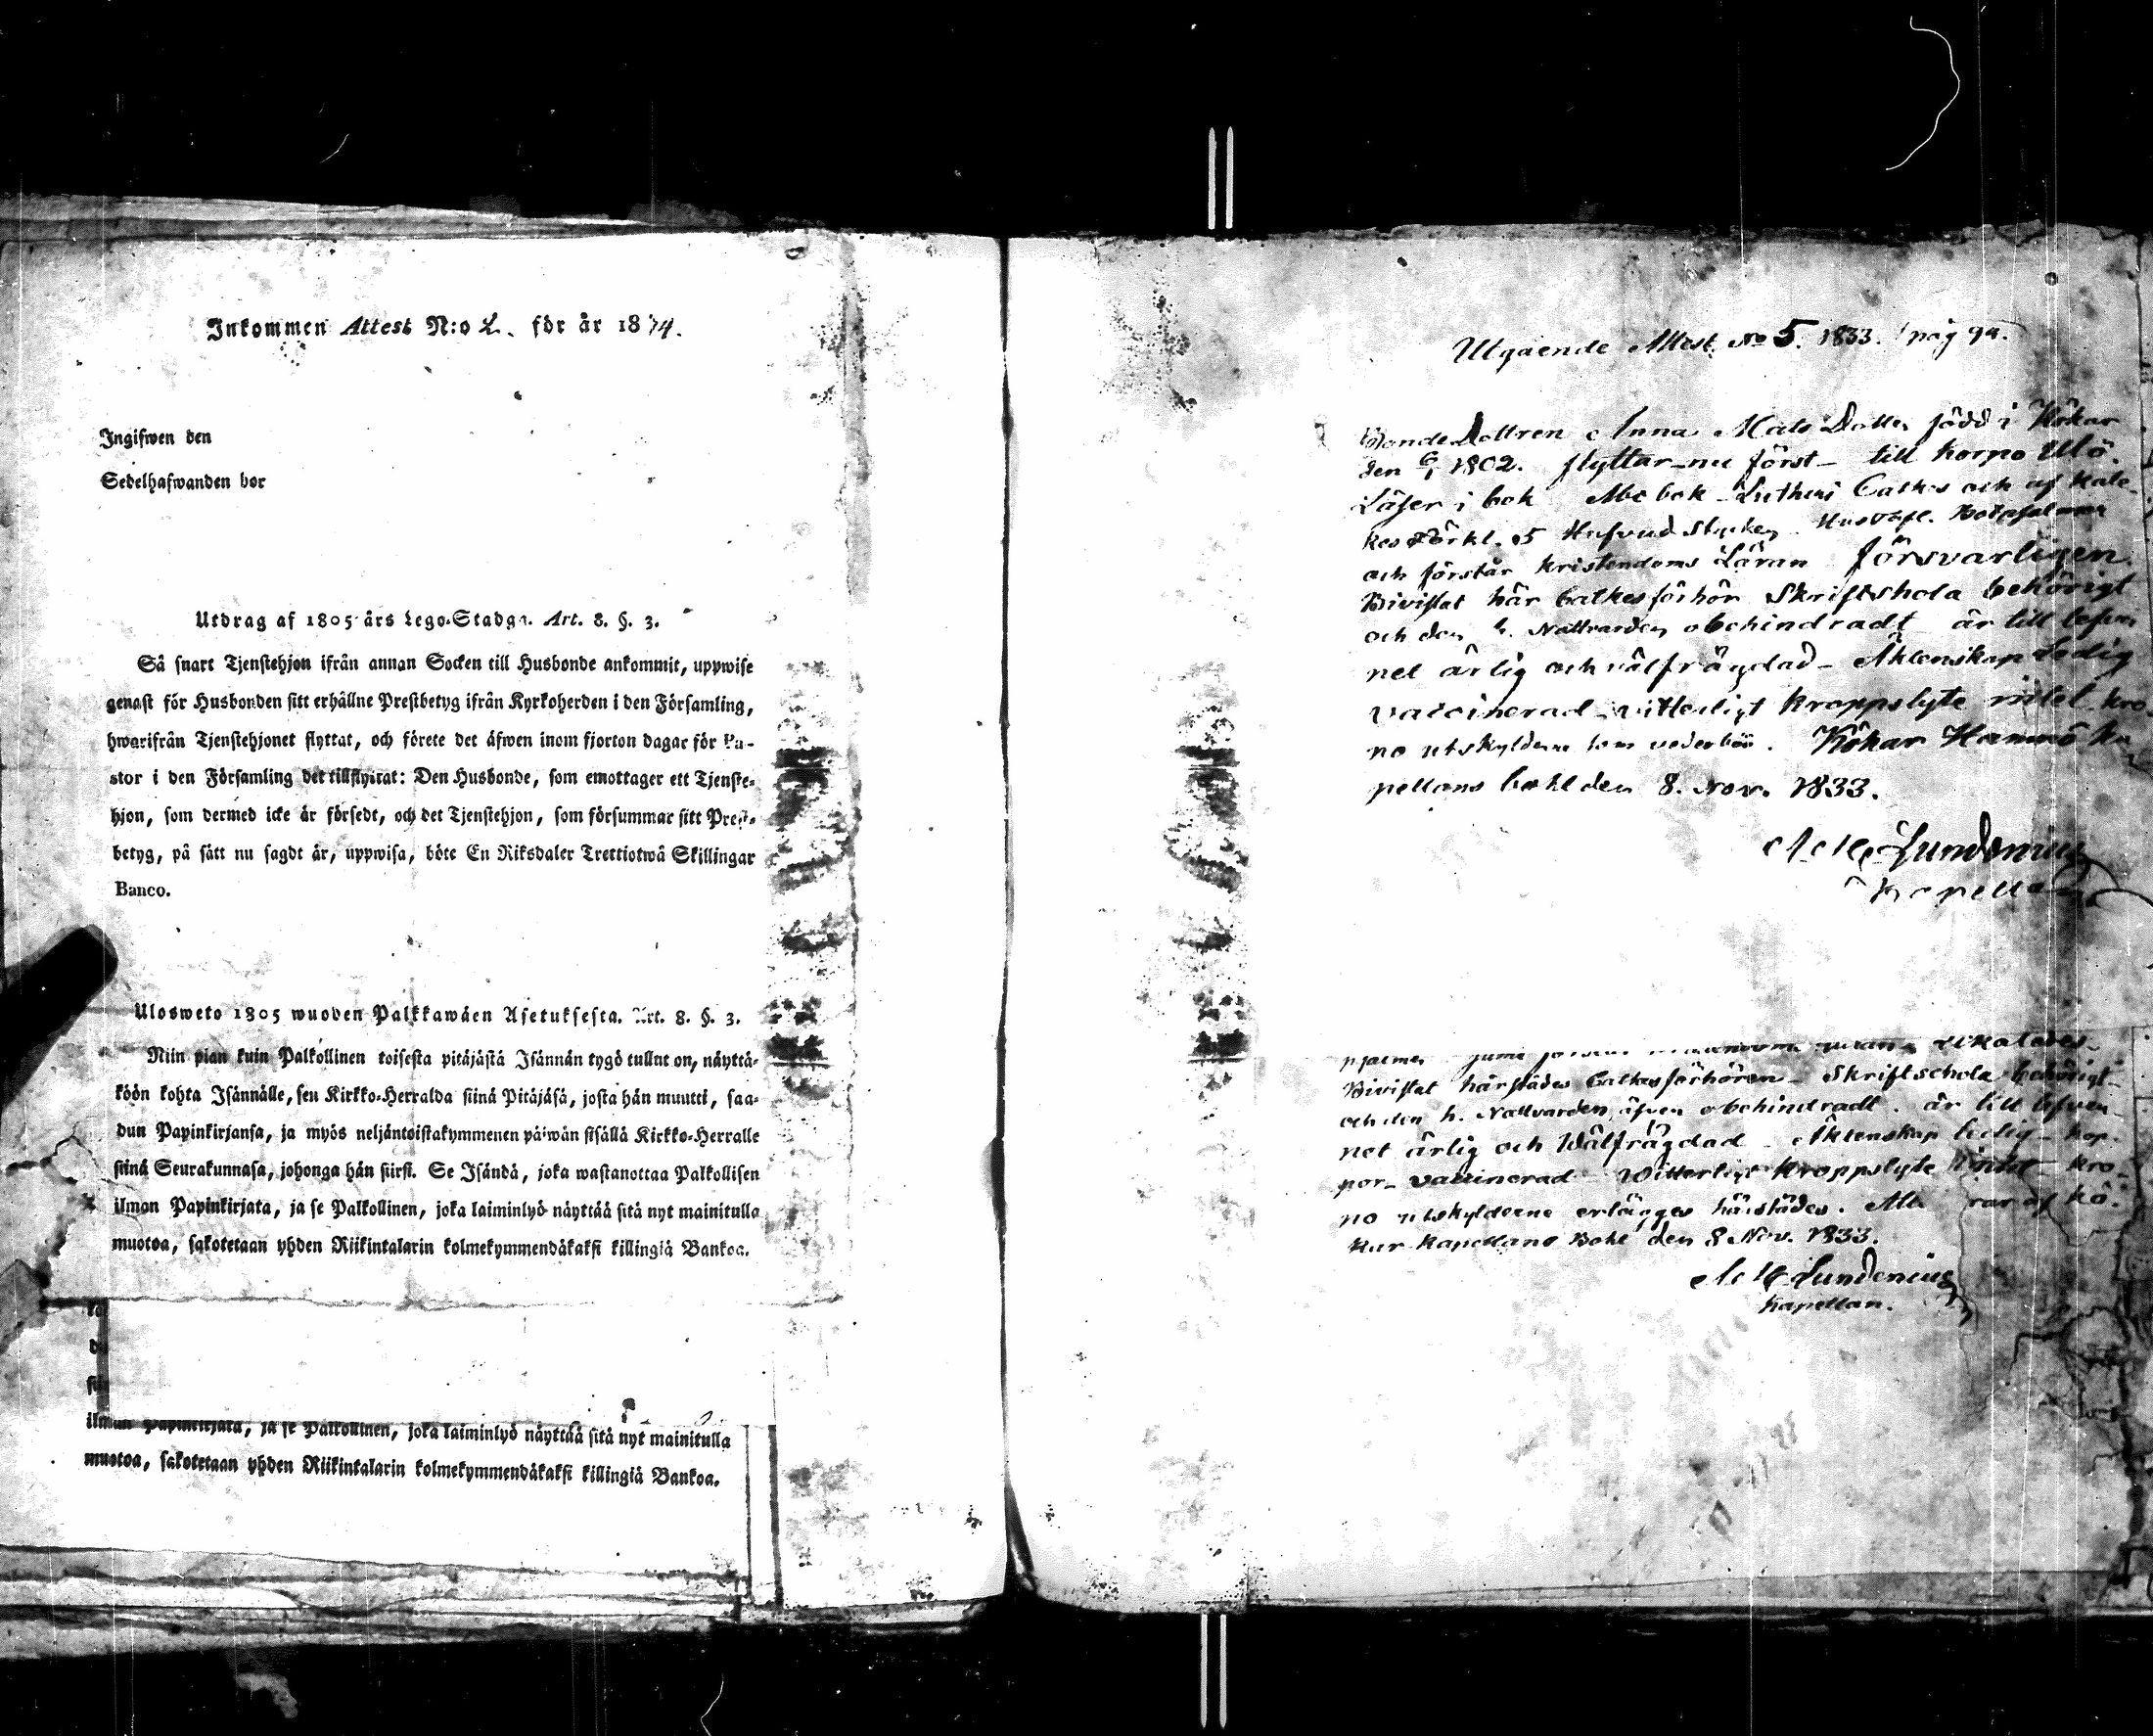 Inkommen Attest N:o 2. för år 1834.
Ingifwen den
Sedelhafwanden bor
Utdrag af 1805 års Lego-Stadga. Art. 8. §. 3.
Så snart Tjenstehjon ifrån annan Socken till Husbonde ankommit, uppwise
genast för Husbonden sitt erhållne Prestbetyg ifrån Kyrkoherden i den Församling,
hwarifrån Tjenstehjonet flyttat, och förete det äfwen inom fjorton dagar för Pa-
stor i den Församling det tillflyttat: Den Husbonde, som emottager ett Tjenste-
hjon, som dermed icke är försedt, och det Tjenstehjon, som försummar sitt Prest-
betyg, på sätt nu sagdt är, uppwisa, böte En Riksdaler Trettiotwå Skillingar
Banco.
Ulosweto 1805 wuoden Palkkawäen Asetuksesta. Art. 8. §. 3.
Niin pian kuin Palkollinen toisesta pitäjästä Isännän tygö tullut on, näyttä-
köön kohta Isännälle, sen Kirkko-Herralda siinä Pitäjäsä, josta hän muutti, saa-
dun Papinkirjansa, ja myös neljäntoistakymmenen päiwän sisällä Kirkko-Herralle
siinä Seurakunnasa, johonga hän siirsi. Se Isändä, joka wastanottaa Palkollisen
ilman Papinkirjata, ja se Palkollinen, joka laiminlyö näyttää sitä nyt mainitulla
muotoa, sakotetaan yhden Riikintalarin kolmekymmendäkaksi killingiä Bankoa.
ilman Papinkirjata, ja se Palkollinen, joka laiminlyö näyttää sitä nyt mainitulla
muotoa, sakotetaan yhden Riikintalarin kolmekymmendäkaksi killingiä Bankoa.
Utgående Attest No 5. 1833. pag 94.
BondeDottren Anna Mats Dotter född i Kökar
den 6/1 1802. flyttar nu först till Korpo Utö.
Läser i bok Abc bok Lutheri Catkes och af Kate-
kes Förkl. 5 Hufvud Stycken Hustafl. Botpsalmer
och förstår kristendoms Läran försvarligen
Bivistat här Catkesförhör Skriftskola behörigt
och den h. Nattvarden obehindradt är till lefver
net ärlig och välfrägdad Äktenskap Ledig
vaccinerad vitterligt kroppslyte intet kro
no utskylderne . Kökar Hamnö Ka
pellans bohl den 8. Nov. 1833.
Lundenius
Kapellan
Bivistat härstädes Catkesförhören Skriftschola behörigt
och den h. Nattvarden äfven obehindradt. är till lefver
net ärlig och Wälfrägdad Äktenskap ledig kop-
por vaccinerad Witterligt kroppslyte intet kro-
no utskylderne erlägges härstädes. af Kö-
kar Kapellans Bohl den 8 Nov. 1833.
Lundenius
Kapellan.